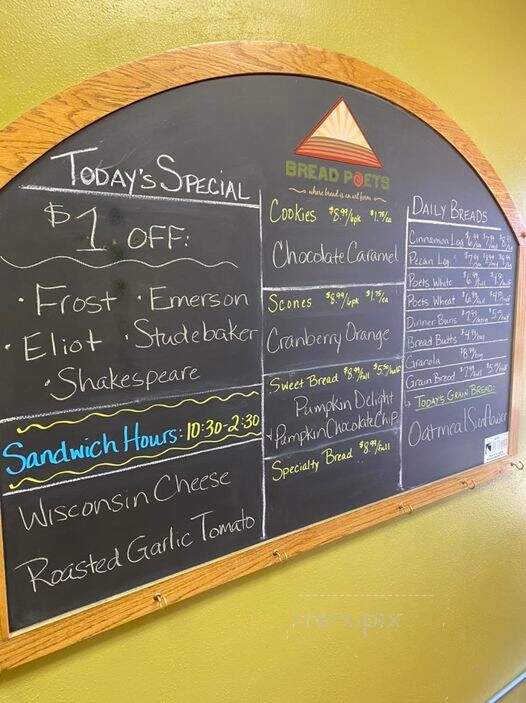 Today's Special
$1 OFF:
· Frost · Emerson
· Eliot · Studebaker
· Shakespeare
Sandwich Hours: 10:30-2:30
Wisconsin Cheese
Roasted Garlic Tomato
BREAD POETS
where bread is an art form
Cookies $8.99/6pk $1.75/ea
Chocolate Caramel
Scones $8.99/6pk $1.75/ea
Cranberry Orange
Sweet Bread $8.99/full $5.50/half
Pumpkin Delight
Pumpkin Chocolate Chip
Specialty Bread $8.99/full
Daily Breads
Cinnamon Log
Pecan Log
Poets White
Poets Wheat
Dinner Buns
Bread Butts
Granola
Grain Bread
Today's Grain Bread:
Oatmeal Sunflower
menupix